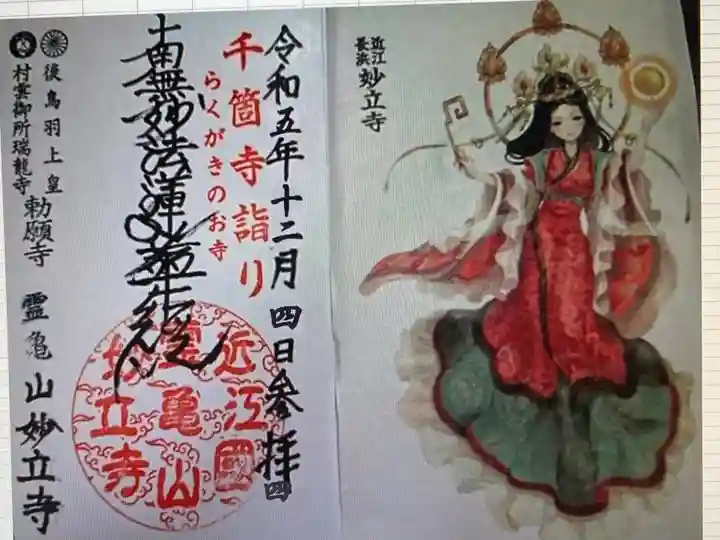 近江
長浜 妙立寺
令和五年十二月四日参拝四
千箇寺詣り
らくがきのお寺
南無妙法蓮華経
後鳥羽上皇
村雲御所瑞龍寺
勅願寺 霊亀山妙立寺
近江國
霊亀山
妙立寺